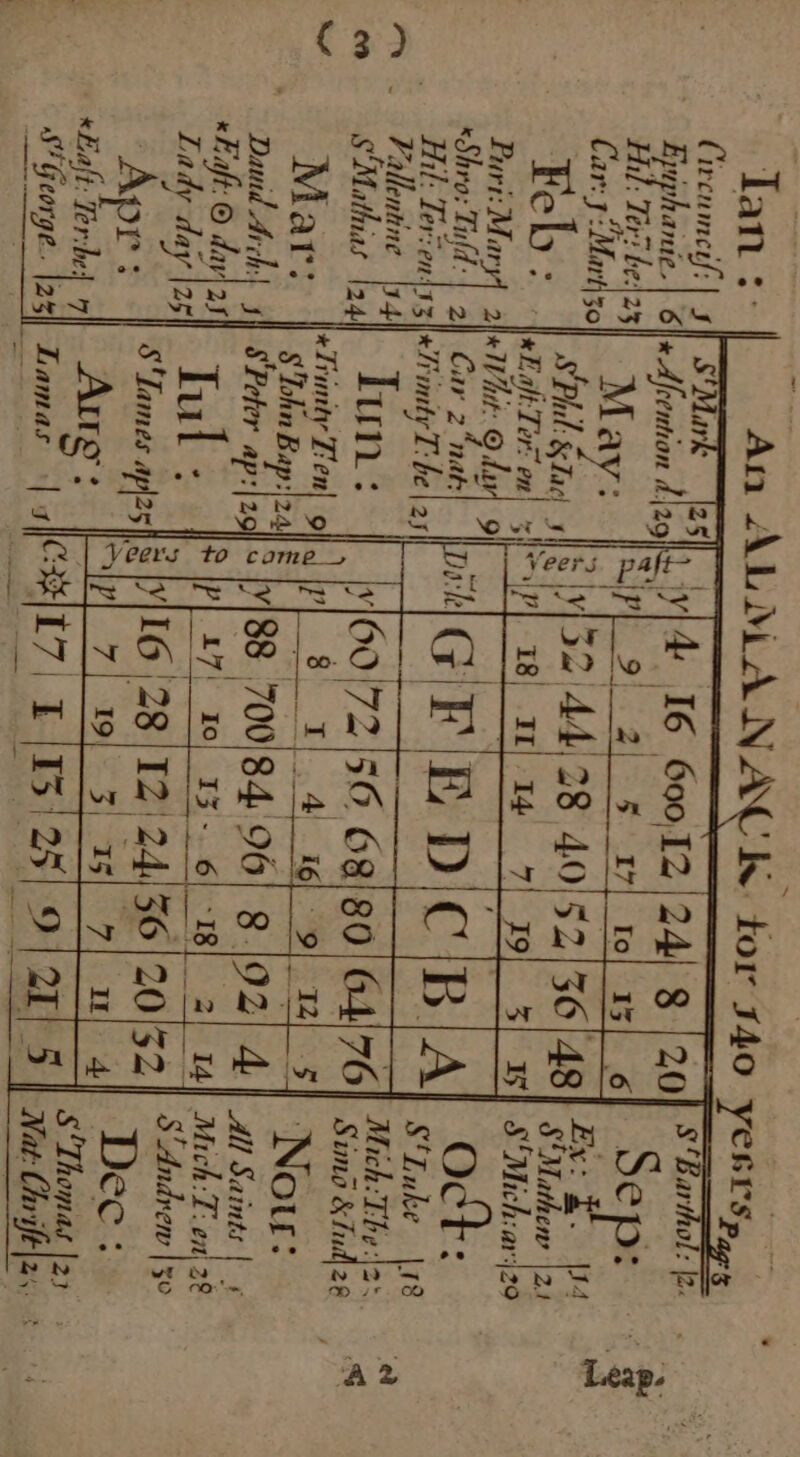 ( 3 )
An ALMANACK for 140 yeers Pag 3
Ian :
Circumcis: | 1
Epyphanie. | 6
Hil: Ter: be: 23
Car: 1: Mart 30
Feb :
Puri: Mary | 2
*Shro: Tusd: | 2
Hil: Ter: en: 13
Vallentine 14
St Mathias | 24
Mar :
Dauid Arch: | 1
*East: ☉ day | 21
Lady day | 25
Apr :
*East: Ter: be: | 7
St George. | 23
St Mark | 25
*Ascention d. | 29
May :
St Phil: & Iac | 1
*East: Ter: en 3
*Whit: ☉ day 9
Car 2 nat: 
*Trinity T: be | 21
Iun :
*Trinity T: en | 9
St Iohn Bap: | 24
St Peter ap: | 29
Iul :
St Iames ap | 25
Aug :
Lamas | 1
Yeers past
y | 4 | 16 | 600 | 12 | 24 | 8 | 20
p | 9 | 2 | 5 | 17 | 10 | 13 | 6
y | 32 | 44 | 28 | 40 | 52 | 36 | 48
p | 18 | 11 | 14 | 7 | 19 | 3 | 15
G | F | E | D | C | B | A
Yeers to come
y | 60 | 72 | 56 | 68 | 80 | 64 | 76
p | 8 | 1 | 4 | 16 | 9 | 12 | 5
y | 88 | 700 | 84 | 96 | 8 | 92 | 4
p | 17 | 10 | 13 | 6 | 18 | 2 | 14
y | 16 | 28 | 12 | 24 | 36 | 20 | 32
p | 7 | 19 | 3 | 15 | 7 | 11 | 4
C: | 17 | 1 | 13 | 25 | 9 | 21 | 5
St Barthol: |
Sep :
Ex: | 14
St Mathew | 21
St Mich: ar: | 29
Oct :
St Luke | 18
Mich: T: be: |
Simo & Iud | 28
Nou :
All Saints | 1
Mich: T: en 28
St Andrew | 30
Dec :
St Thomas | 21
Nat: Christ |
A 2
Leap-